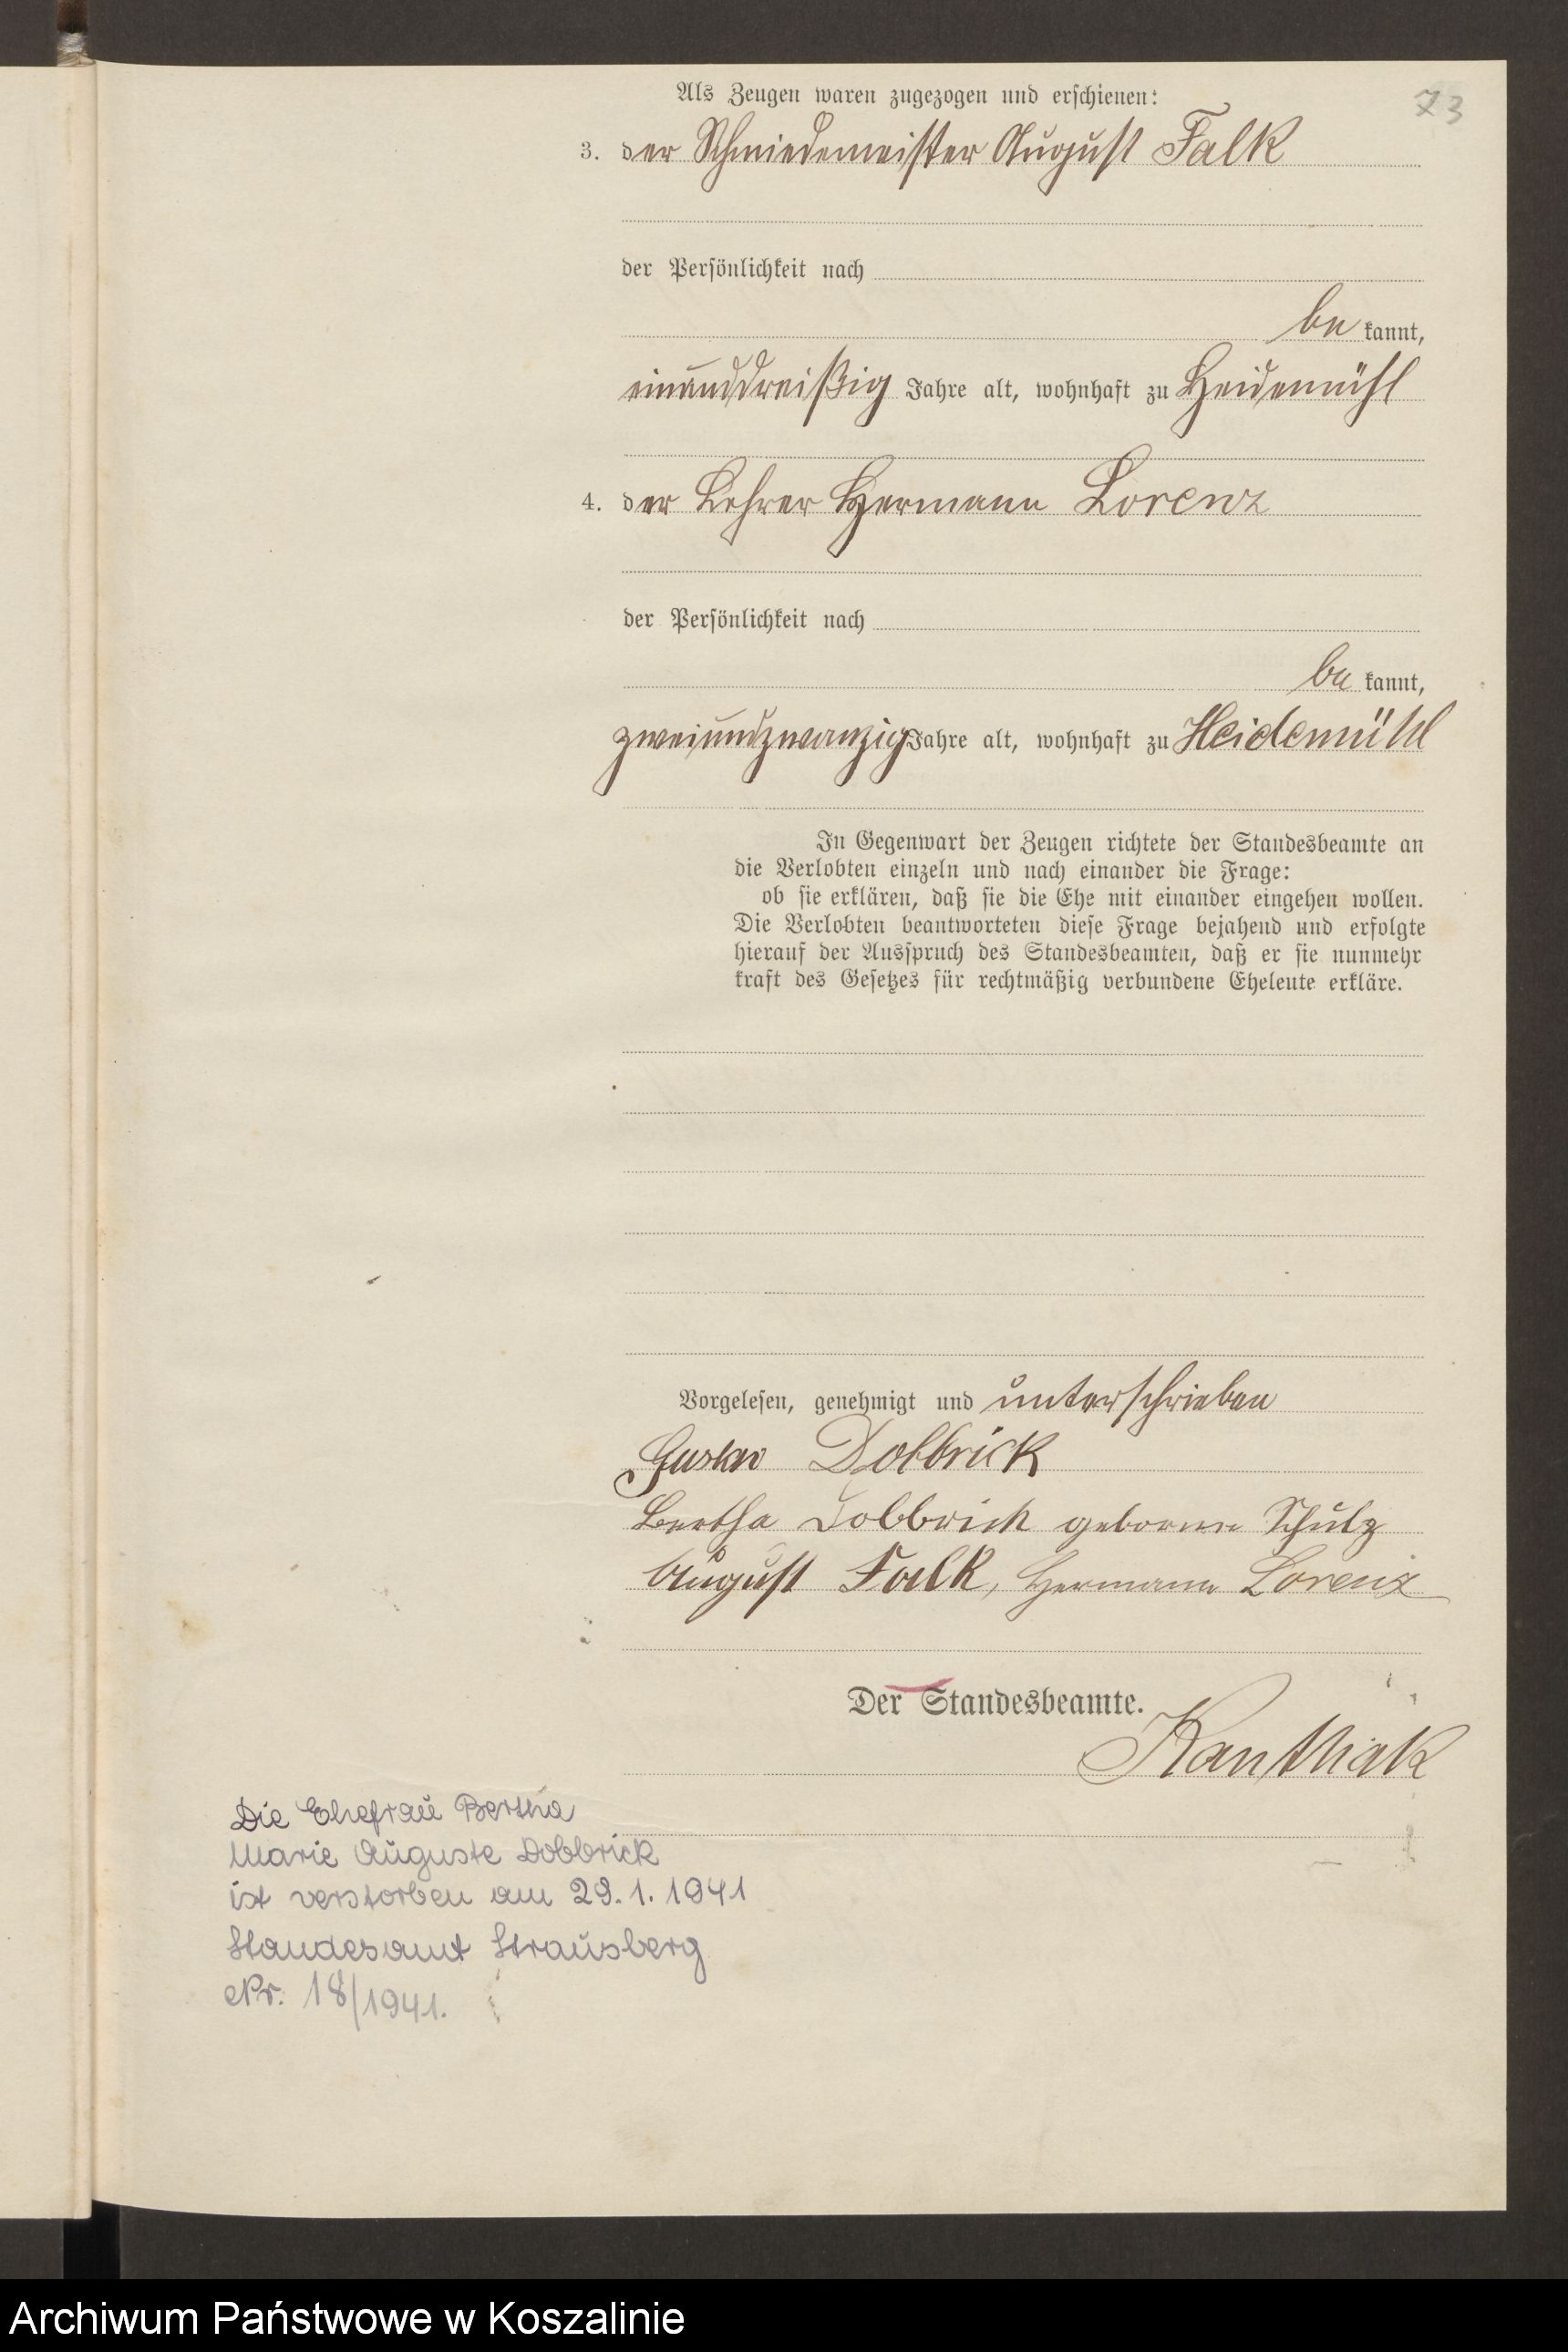 73
Als Zeugen waren zugezogen und erschienen:
3. der Schmiedemeister August Falk
der Persönlichkeit nach
be kannt,
einunddreißig Jahre alt, wohnhaft zu Heidemühl
4. der Lehrer Hermann Lorenz
der Persönlichkeit nach
be kannt,
zweiundzwanzig Jahre alt, wohnhaft zu Heidemühl
In Gegenwart der Zeugen richtete der Standesbeamte an
die Verlobten einzeln und nach einander die Frage:
ob sie erklären, daß sie die Ehe mit einander eingehen wollen.
Die Verlobten beantworteten diese Frage bejahend und erfolgte
hierauf der Ausspruch des Standesbeamten, daß er sie nunmehr
kraft des Gesetzes für rechtmäßig verbundene Eheleute erkläre.
Vorgelesen, genehmigt und unterschrieben
Gustav Dobbrick
Bertha Dobbrick geborene Schulz
August Falk, Hermann Lorenz
Der Standesbeamte.
Kanthak
Die Ehefrau Bertha
Marie Auguste Dobbrick
ist verstorben am 29.1.1941
Standesamt Strausberg
Nr. 18/1941.
Archiwum Państwowe w Koszalinie